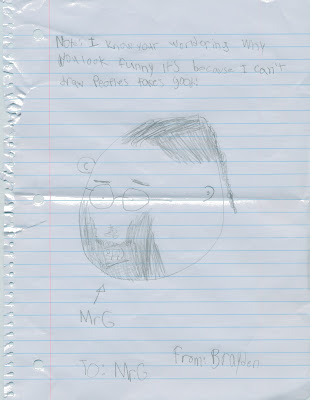 Note: I know your wondering why
you look funny it's because I can't
draw Peoples faces good!
MrG
To: MrG
from: Braylen